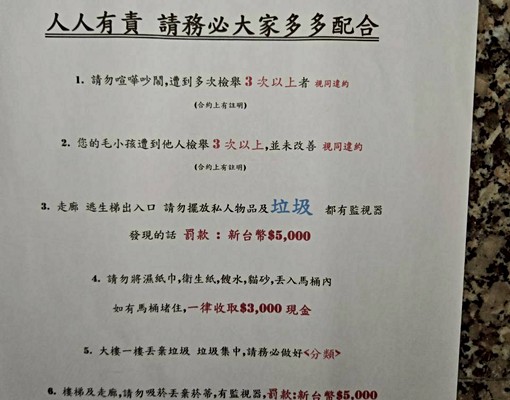 人人有責 請務必大家多多配合
1. 請勿喧嘩吵鬧,遭到多次檢舉 3 次以上者 視同違約
(合約上有註明)
2. 您的毛小孩遭到他人檢舉 3 次以上,並未改善 視同違約
(合約上有註明)
3. 走廊 逃生梯出入口 請勿擺放私人物品及垃圾 都有監視器
發現的話 罰款 : 新台幣$5,000
4. 請勿將濕紙巾,衛生紙,餿水,貓砂,丟入馬桶內
如有馬桶堵住,一律收取$3,000 現金
5. 大樓一樓丟棄垃圾 垃圾集中,請務必做好<分類>
6. 樓梯及走廊,請勿吸菸丟棄菸蒂,有監視器,罰款:新台幣$5,000